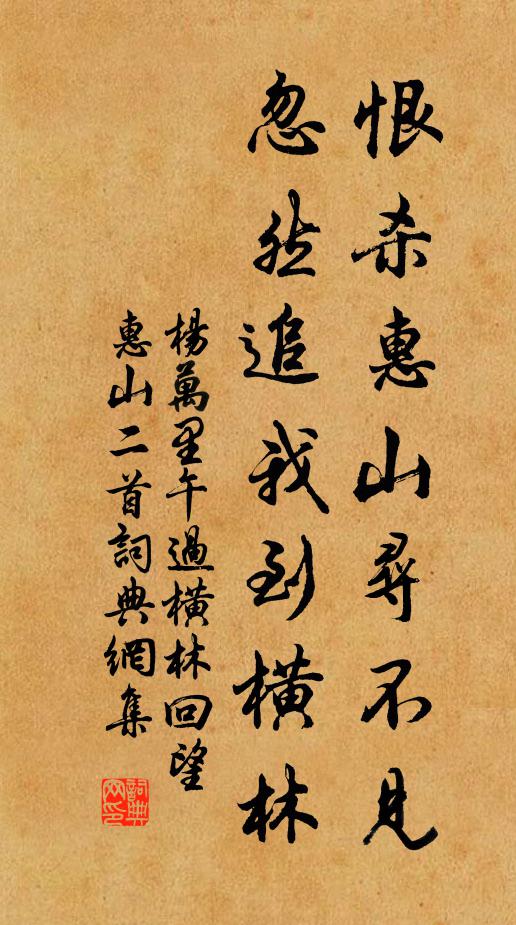 恨杀惠山尋不見
忽然追我到橫林
楊萬里午過橫林回望
惠山二首詞典網集
詞典
网印